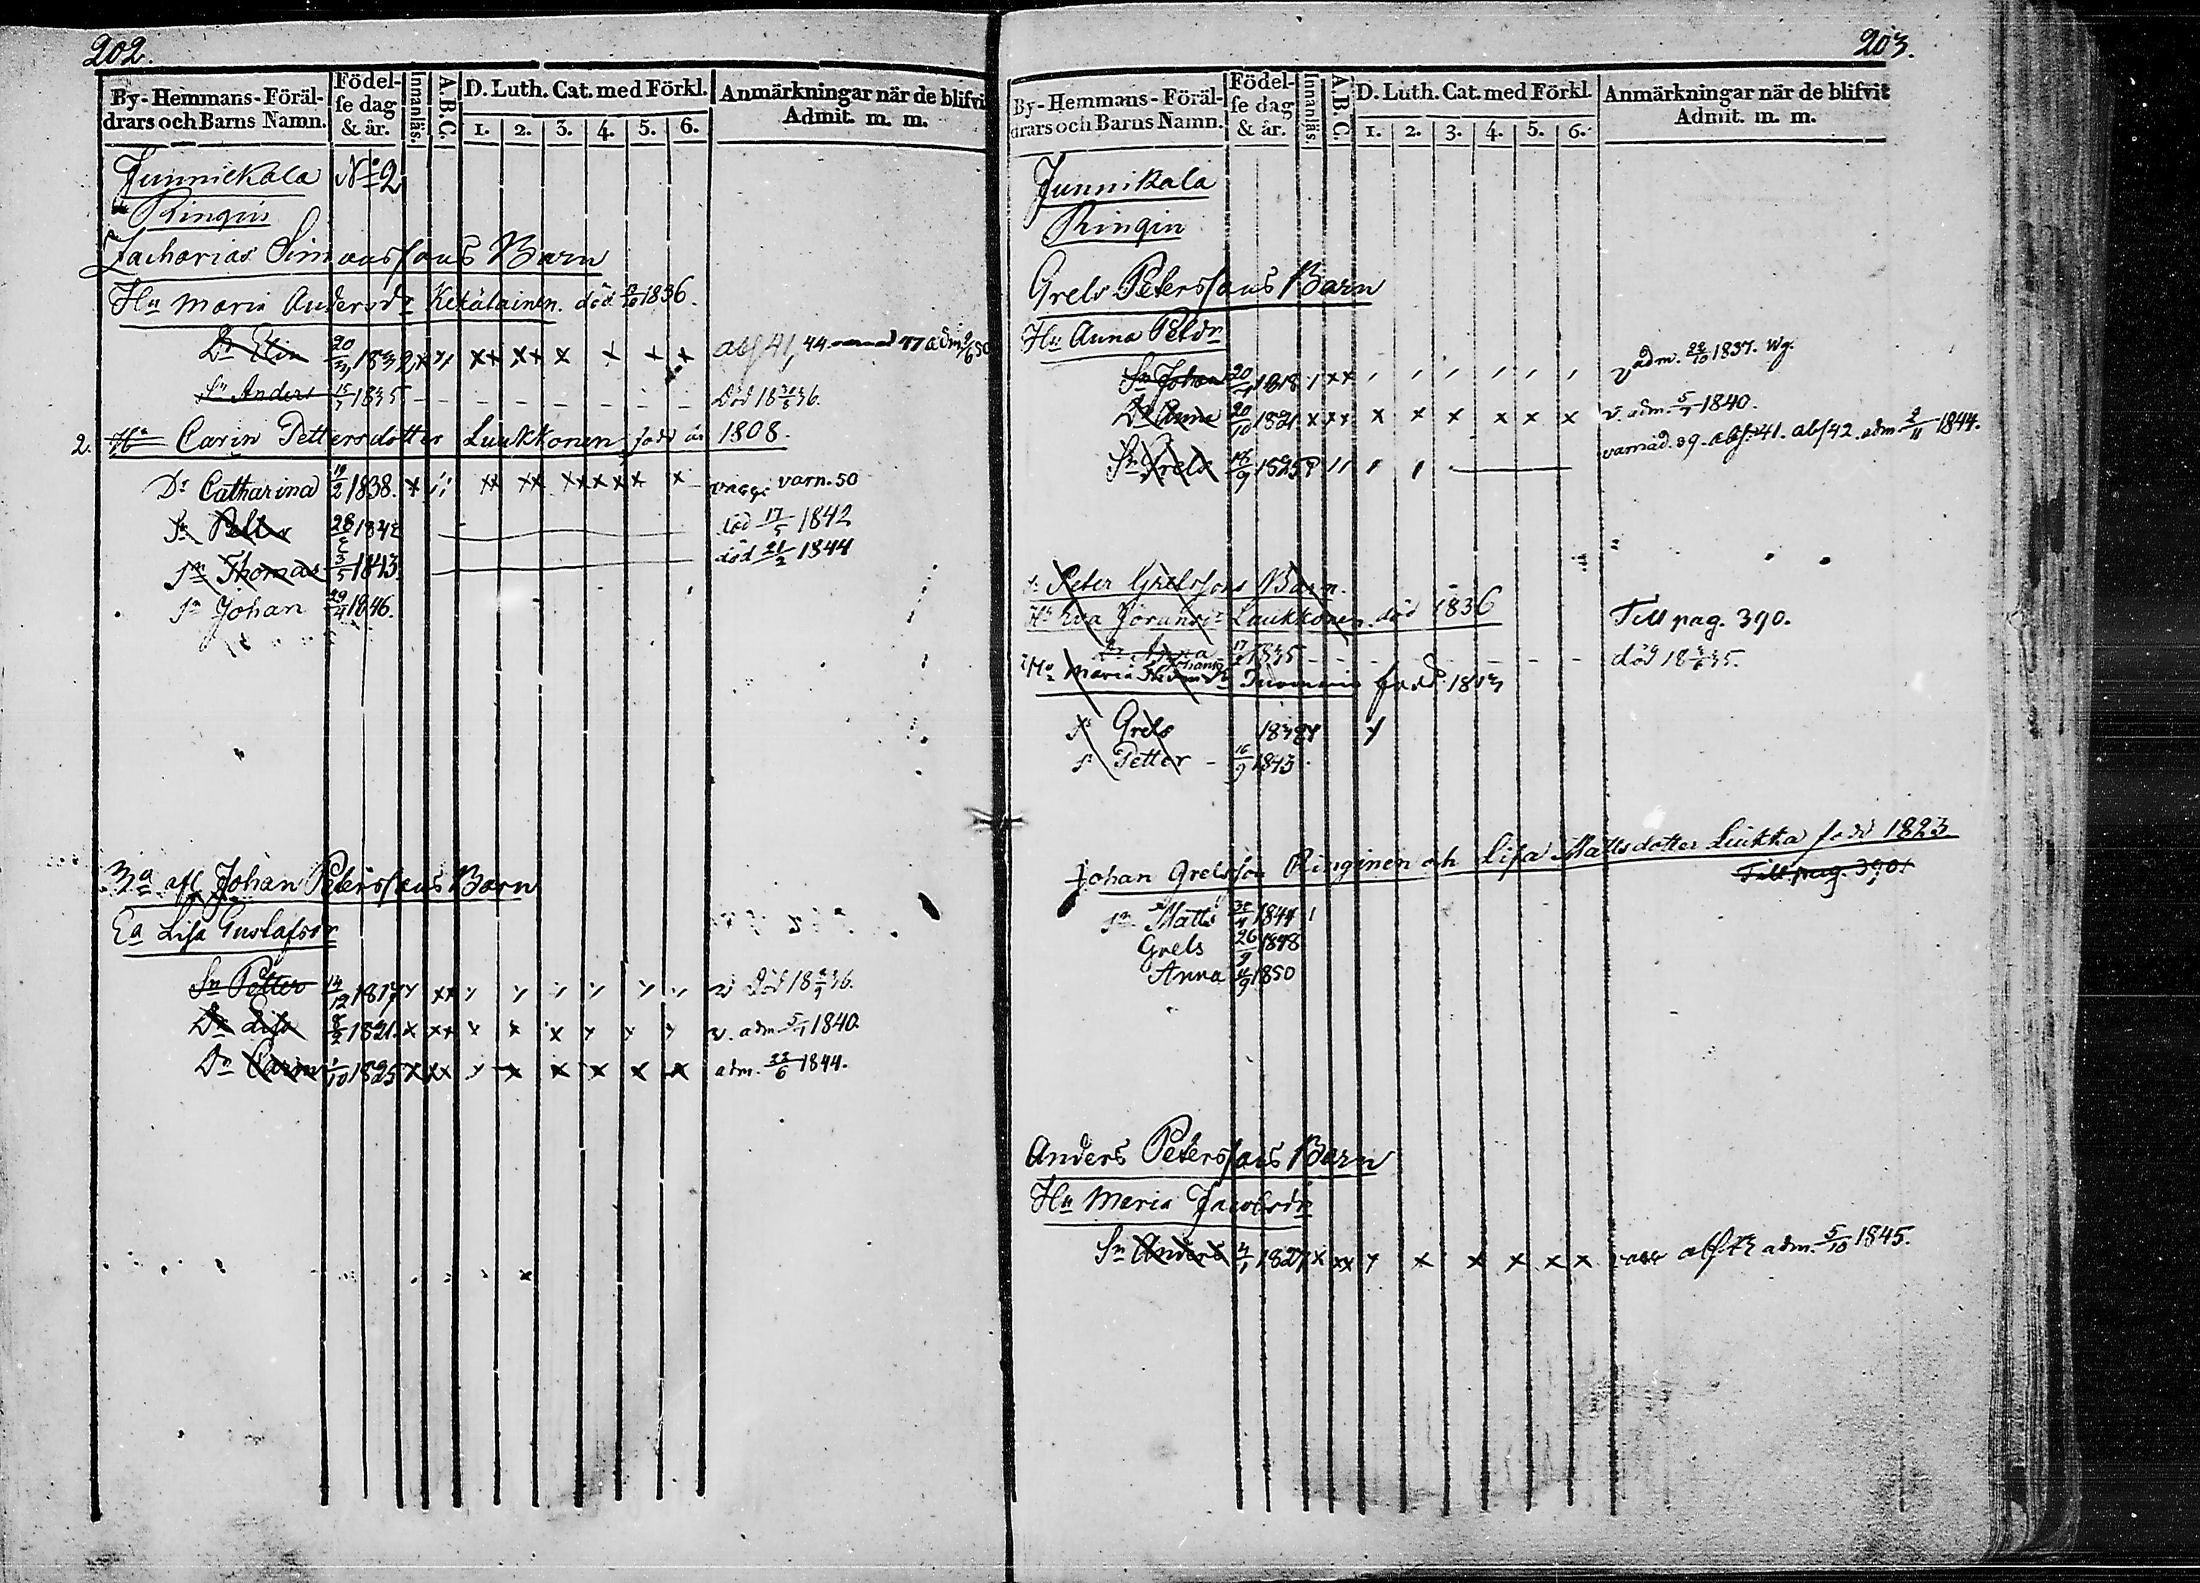 202.
By-Hemmans-Föräl-
drars och Barns Namn.
Födel-
se dag
& år.
Innanläs.
A.B.C.
D. Luth. Cat. med Förkl.
1. 2. 3. 4. 5. 6.
Anmärkningar när de blifvi
Admit. m. m.
Junnickala No 2
Ringin
Zacharias Simonssons Barn
Hu Maria Andersdr Kekäläinen död 1836.
Dr Elin 20/3 1832 x x x x x x x x abs 41, 44 47 adm 50
Sn Anders 15/7 1835 - - - - - - Död 18 36.
2. Hu Carin Pettersdotter Luukkonen född år 1808.
Dr Catharina 19/2 1838. x xx xx xx x x x x varn. 50
Sn Petter 28 1842 död 17/5 1842
Sn Thomas 3/5 1843 död 21/2 1844
Sn Johan 29/4 1846.
afl Johan Peterssons Barn
Ea Lisa Gustafsdr
Sn Petter 14/12 1817 v Död 18 36.
Dr Lisa 8/2 1821. x xx x x x v. adm 5/7 1840.
Dr Carin 1/10 1825 x xx x x x x x x adm. 23/6 1844.
203.
By-Hemmans-Föräl-
drars och Barns Namn.
Födel-
se dag
& år.
Innanläs.
A.B.C.
D. Luth. Cat. med Förkl.
1. 2. 3. 4. 5. 6.
Anmärkningar när de blifvit
Admit. m. m.
Junnikala
Ringin
Grels Peterssons Barn
Hu Anna Petdr
Sn Johan 20 1818 xx v adm. 22/10 1837. Wg.
Dr Anna 20/10 1821 x xx x x x x x x v. adm. 5/7 1840.
Sn Grels 1825 varnad. 39. abs. 41. abs 42. adm. 2/11 1844.
Sn Peter Grelssons Barn.
Hu Eva Johansdr Luukkonen död 1836 Till pag. 390.
Dr Anna 17 1835 - - - - - - död 18 35.
2 Hu Maria Johans född 1813
Sn Grels 1838
Sn Petter - 16/9 1843.
Johan Grelsson Ringinen och Lisa Mattsdotter Liukka född 1823
Till pag. 390.
Sn Matts 1844
Grels 26/9 1848
Anna 1850
Anders Peterssons Barn
Hu Maria Jacobsdr
Sn Anders 4/1 1827 x xx x x x x x abs. adm. 5/10 1845.